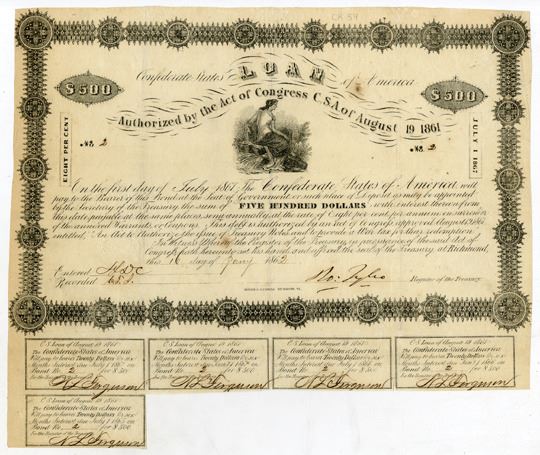 CR 54
Confederate States LOAN of America
$500 $500
Authorized by the Act of Congress C.S.A. of August 19 1861
No. 2 No. 2
EIGHT PER CENT
JULY 1 1867
On the first day of July 1867 The Confederate States of America will
pay to the Bearer of this Bond at the Seat of Government or such place of Deposit as may be appointed
by the Secretary of the Treasury, the sum of FIVE HUNDRED DOLLARS with interest thereon from
this date payable at the same places, semi annually at the rate of Eight per cent per annum on surrender
of the annexed Warrants, or Coupons. This debt is authorized by an Act of Congress approved August 19 1861
entitled, An Act to Authorize the issue of Treasury Notes and to provide a War tax for their redemption.
In Witness Whereof the Register of the Treasury, in pursuance of the said Act of
Congress, hath hereunto set his hand and affixed the seal of the Treasury at Richmond,
this day of Jany 1862
Entered
Recorded
Ro. Tyler
Register of the Treasury
C.S. Loan of August 19 1861
The Confederate States of America
Will pay to bearer Twenty Dollars for six
Months Interest due July 1 1867 on
Bond No. 2 for $500
For the Register of the Treasury
R L Ferguson
C.S. Loan of August 19 1861
The Confederate States of America
Will pay to bearer Twenty Dollars for six
Months Interest due Jany 1 1867 on
Bond No. 2 for $500
For the Register of the Treasury
R L Ferguson
C.S. Loan of August 19 1861
The Confederate States of America
Will pay to bearer Twenty Dollars for six
Months Interest due July 1 1866 on
Bond No. 2 for $500
For the Register of the Treasury
R L Ferguson
C.S. Loan of August 19 1861
The Confederate States of America
Will pay to bearer Twenty Dollars for six
Months Interest due Jany 1 1866 on
Bond No. 2 for $500
For the Register of the Treasury
R L Ferguson
C.S. Loan of August 19 1861
The Confederate States of America
Will pay to bearer Twenty Dollars for six
Months Interest due July 1 1865 on
Bond No. 2 for $500
For the Register of the Treasury
R L Ferguson